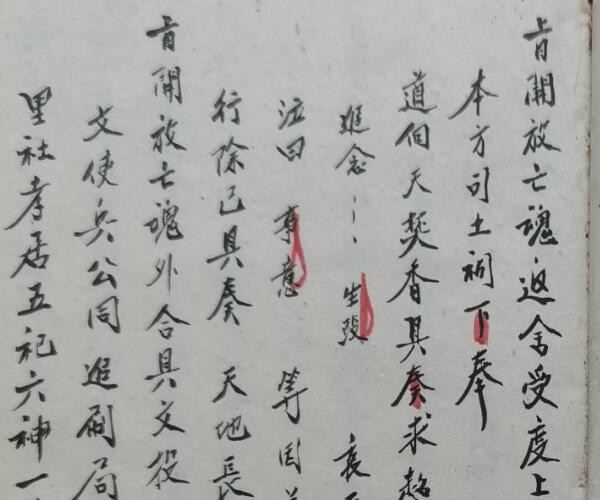 旨開放亡魂返舍受度上
本方司土祠下奉
道伯天焚香具奏求超
進念⺀生殁 哀
泣曰 事意 等因
行除已具奏 天地長
旨開放亡魂外合具文投
文使兵公同追刷局
里社孝居五祀六神一